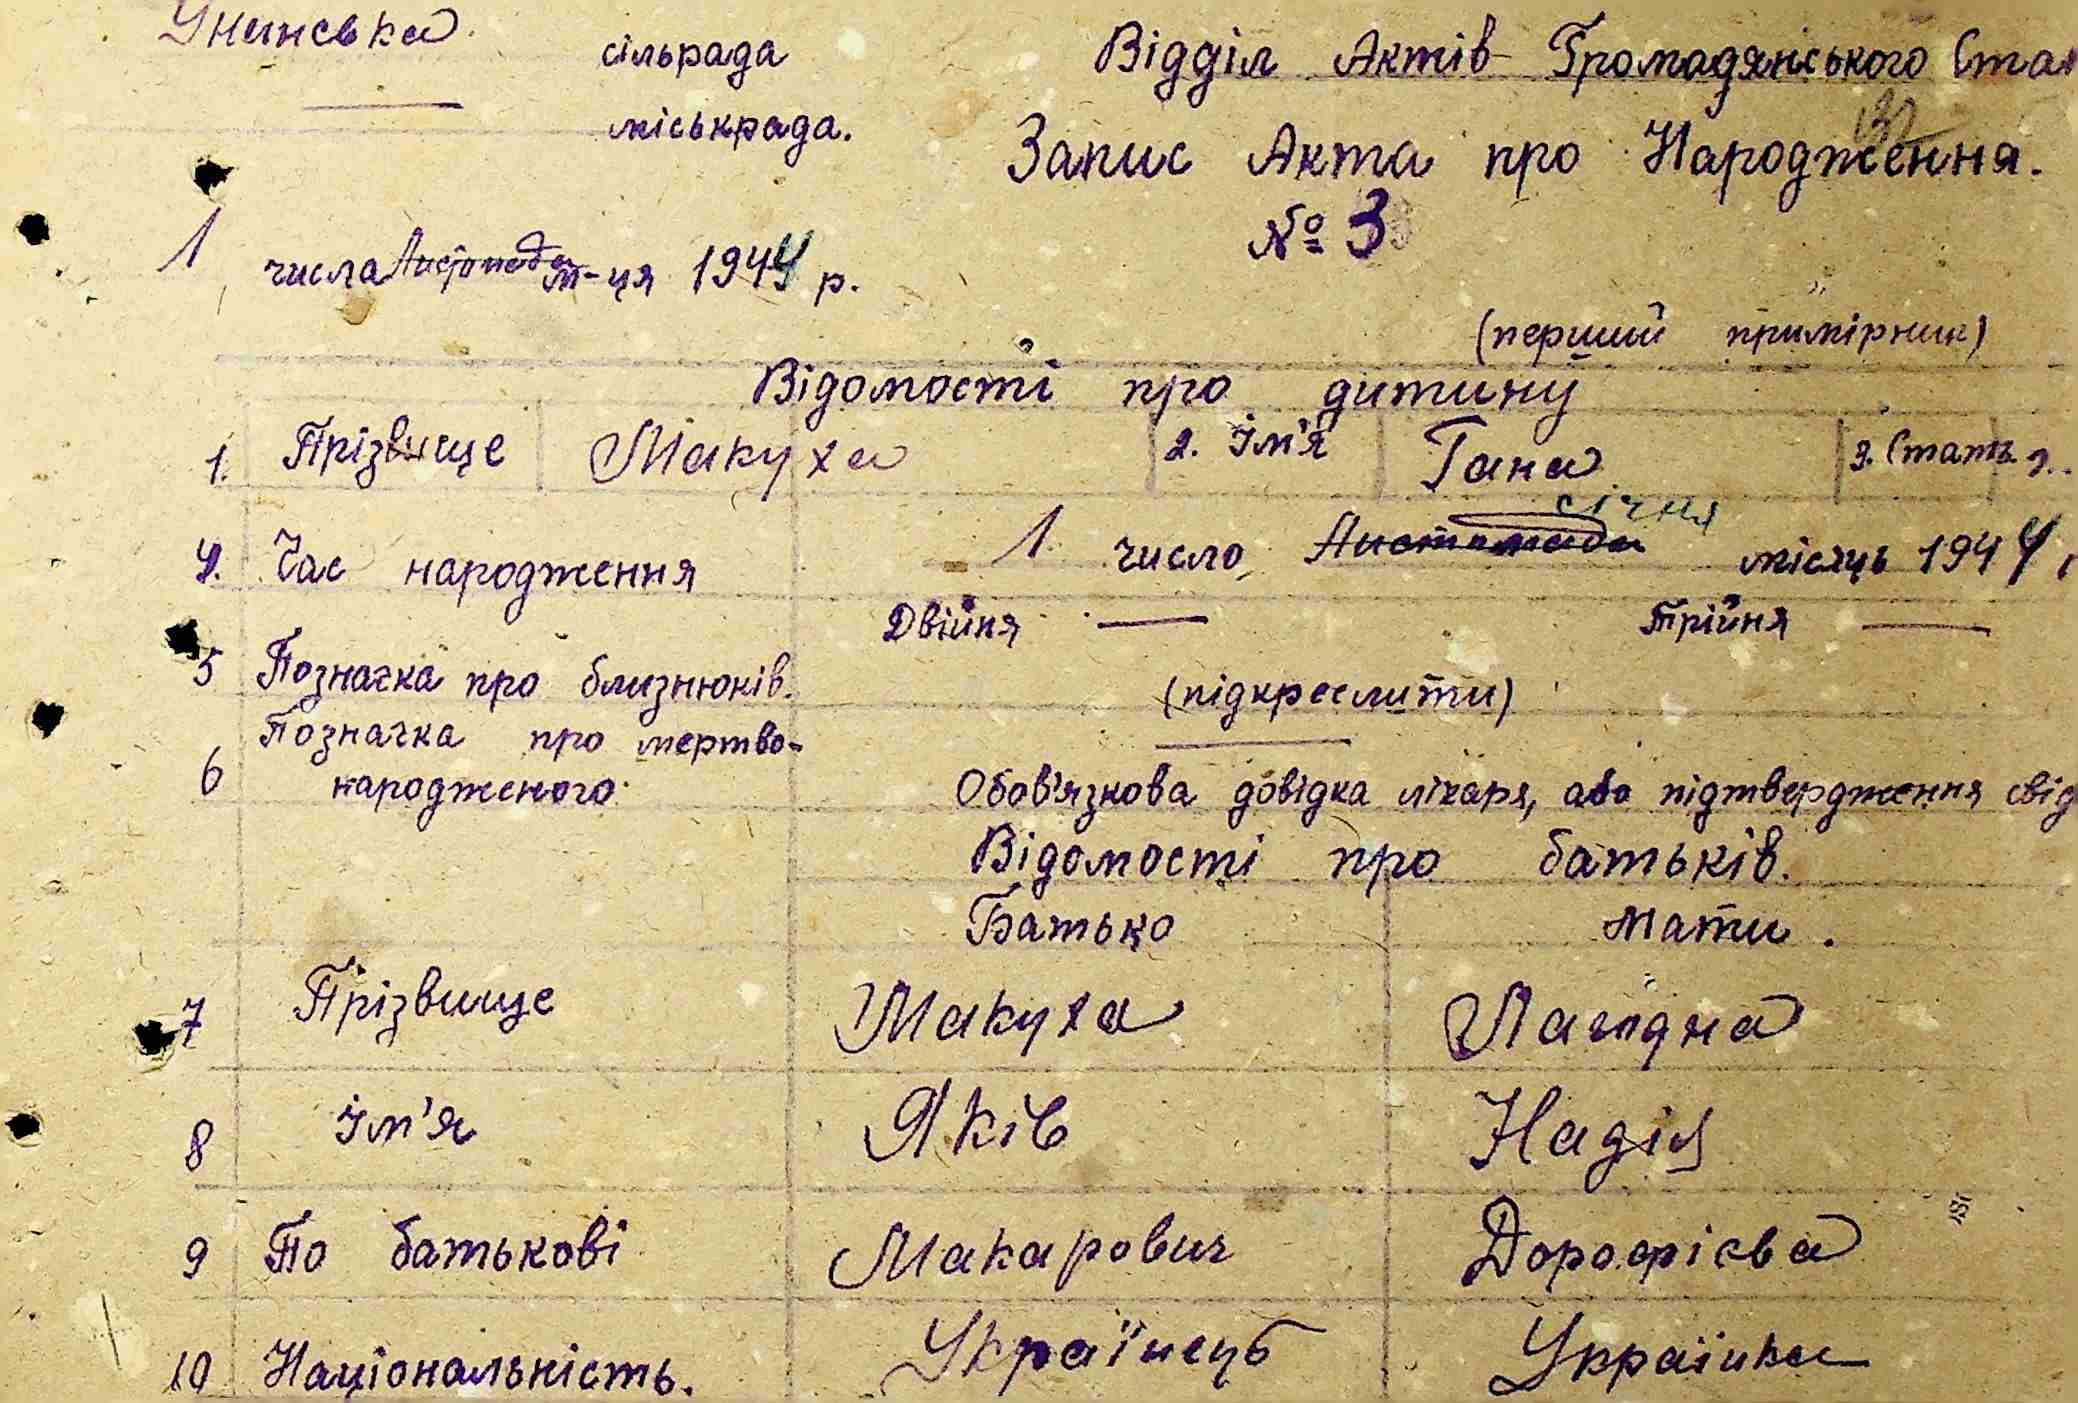 Унинська сільрада
міськрада.
Відділ Актів Громадянського Ста
Запис Акта про Народження.
№ 3
1 числа Листопада м-ця 1944 р.
(перший примірник)
Відомості про дитину
1. Прізвище Макуха 2. Ім'я Гана 3. Стать
січня
4. Час народження 1 число, Листопада місяць 1944
Двійня — Трійня —
5 Позначка про близнюків. (підкреслити)
6 Позначка про мертво-
народженого. Обов'язкова довідка лікаря, або підтвердження свід
Відомості про батьків.
Батько Мати.
7 Прізвище Макуха Лагидна
8 Ім'я Яків Надія
9 По батькові Макарович Дорофієва
10 Національність. Українець Українка